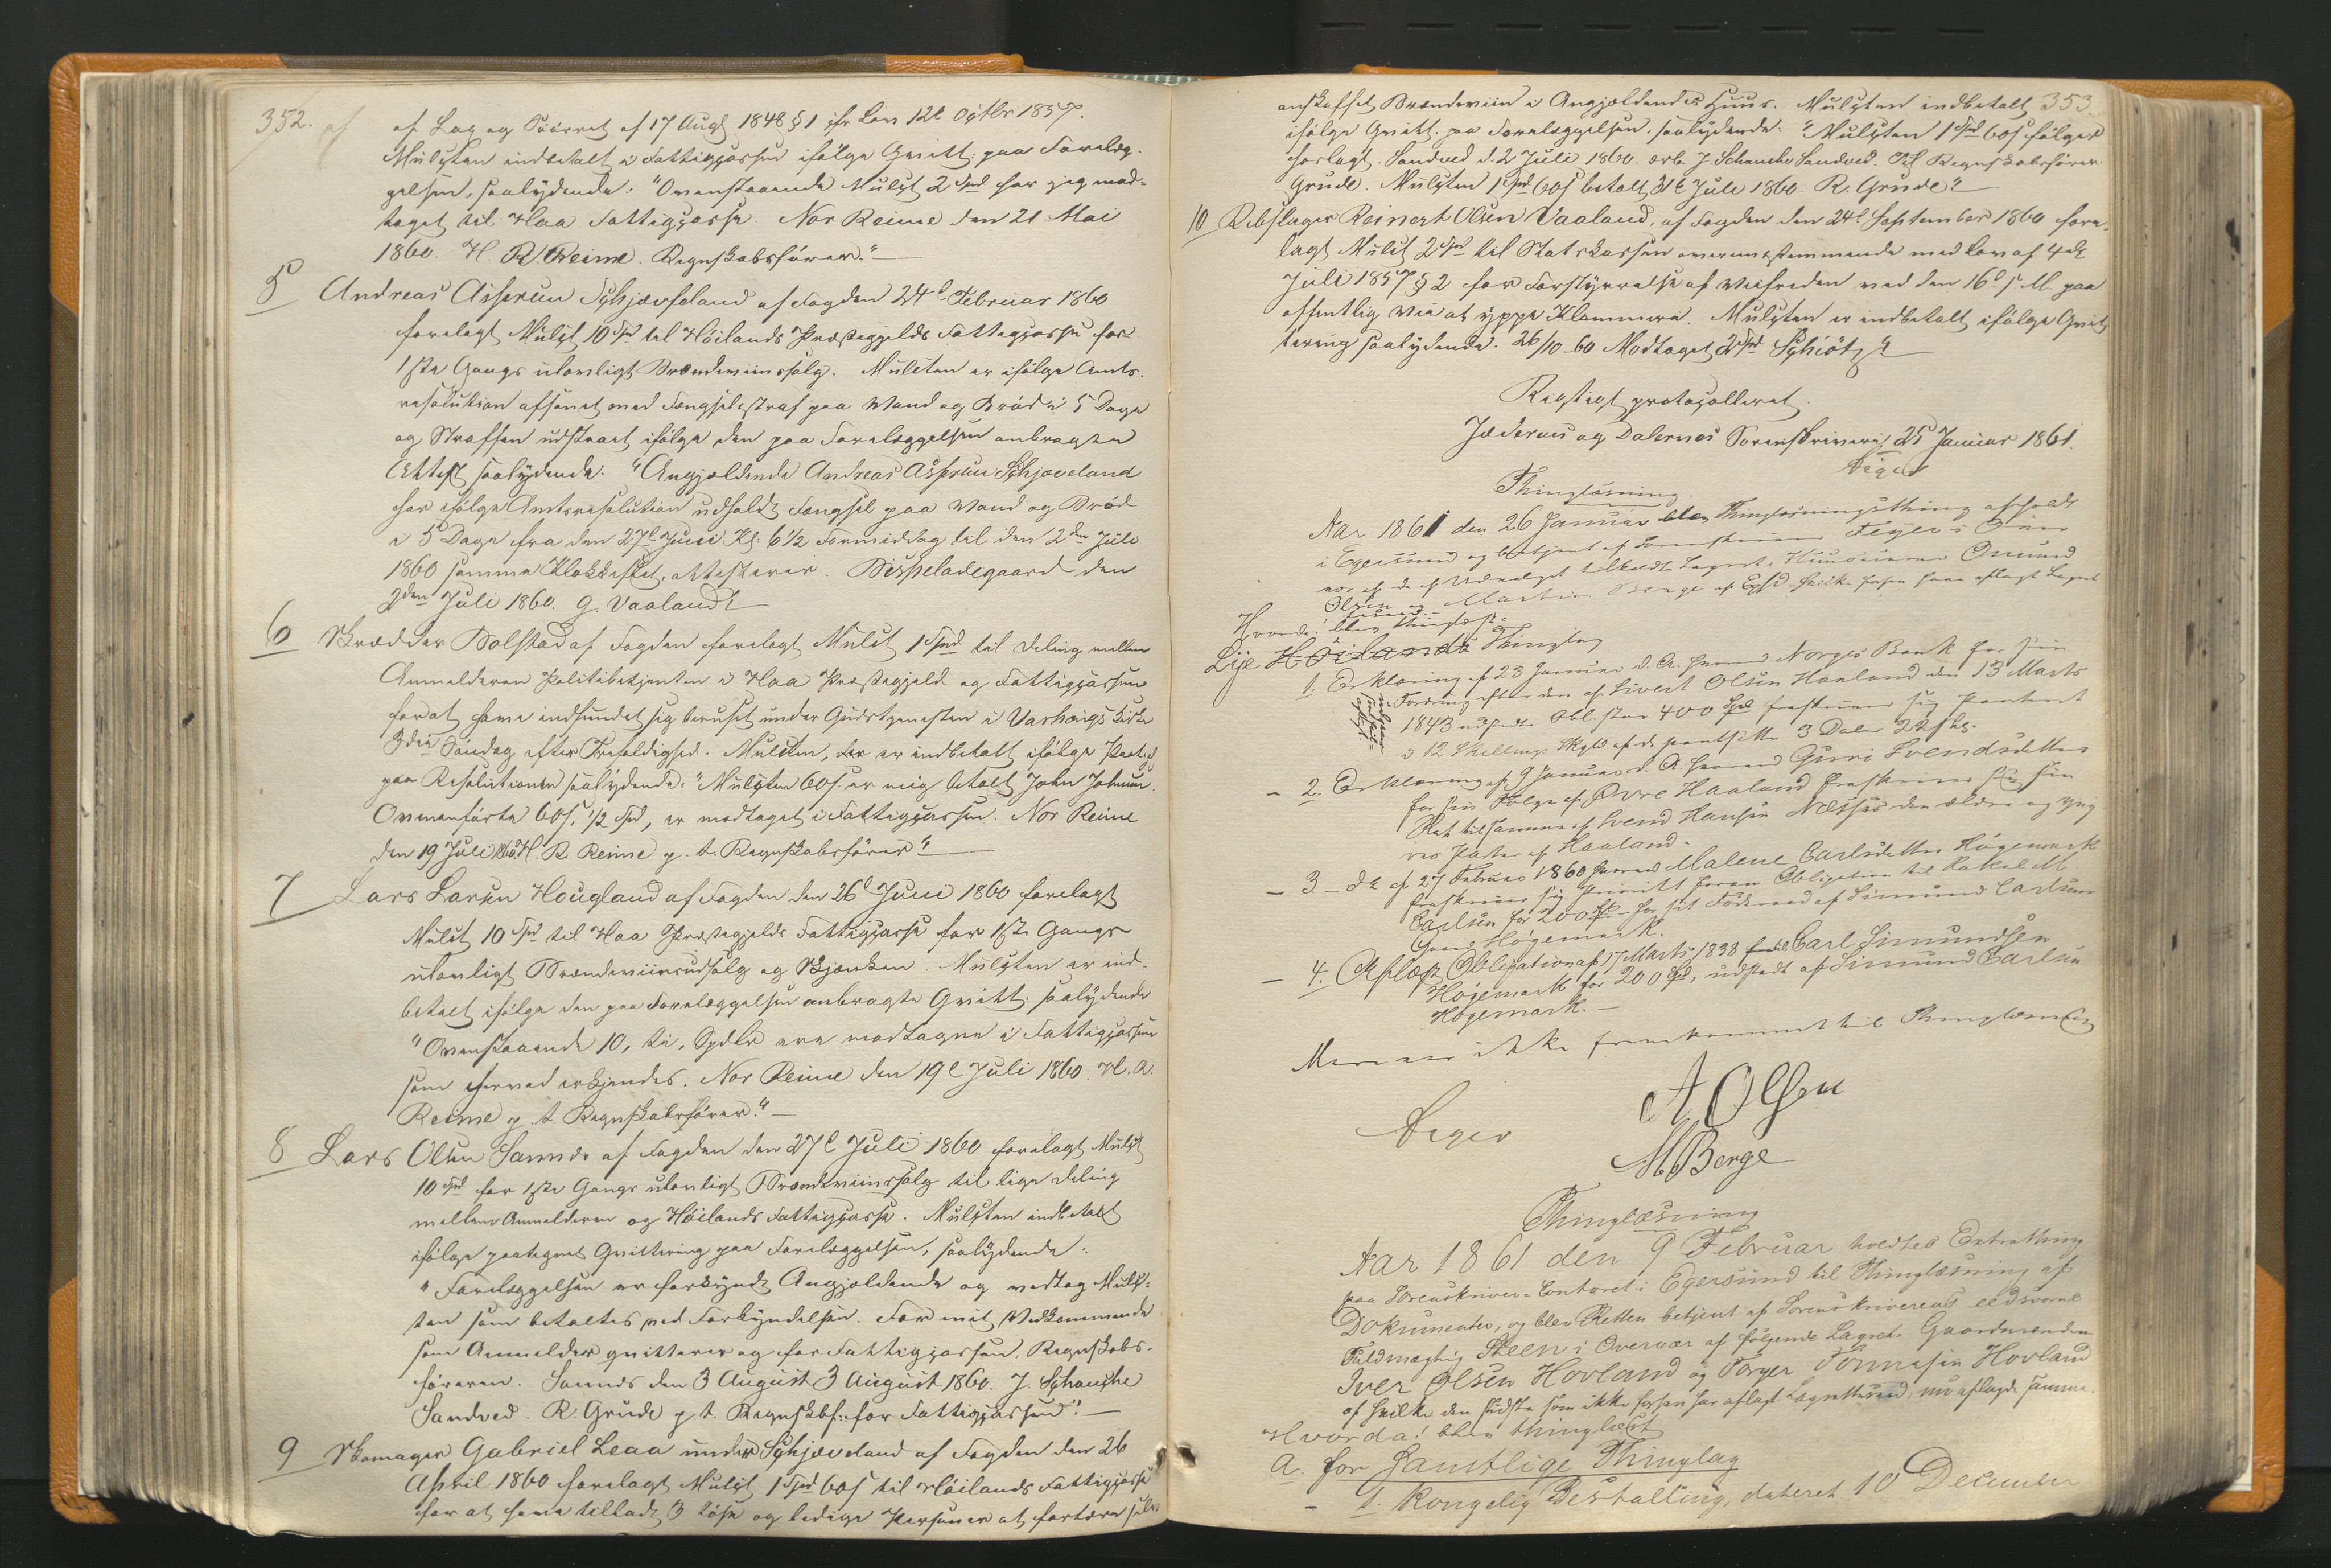 352.
af Lag og Paaret af 17 Augt 1848 § 1 jfr Lov 12te Octbr 1857.
Mulcten indbetalt i Fattigcassen ifølge Qvitt. paa Forelæg-
gelsen, saalydende: "Ovenstaaende Mulct 2 Spd har jeg mod-
taget til Haa Fattigcasse. Nor Reime den 21 Mai
1860. H. R. Reime. Regnskabsfører."
5 Andreas Assersen Schjævseland af Fogden 24de Februar 1860
forelagt Mulct 10 Spd til Høilands Præstegjelds Fattigcasse for
1ste Gangs ulovligt Brændeviinssalg. Mulcten er ifølge Amts-
resolution afsonet med Fængselsstraf paa Vand og Brød i 5 Dage
og Straffen udstaaet ifølge den paa Forelæggelsen anbragte
Attest saalydende: "Angjældende Andreas Assersen Schjæveland
har ifølge Amtsresolution udholdt Fængsel paa Vand og Brød
i 5 Dage fra den 27de Juni Kl: 6 1/2 Formiddag til den 2den Juli
1860 samme Klokkeslet, attesterer. Bispeladegaard den
2den Juli 1860. G. Vaaland"
6 Skrædder Bolstad af Fogden forelagt Mulct 1 Spd til Deling mellem
Anmelderen Politibetjenten i Haa Præstegjeld og Fattigcassen
for at have indfundet sig beruset under Gudstjenesten i Varhougs Kirke
3die Søndag efter Trefoldighed. Mulcten, der er indbetalt ifølge Paategn.
paa Resolutionen saalydende: "Mulcten 60 s. er mig betalt John Johnsen.
Ovenanførte 60 s, 1/2 Spd, er modtaget i Fattigcassen. Nor Reime
den 19 Juli 1860. H. R. Reime p. t. Regnskabsfører"
7 Lars Larsen Hougland af Fogden den 26de Juni 1860 forelagt
Mulct 10 Spd til Haa Præstegjelds Fattigcasse for 1ste Gangs
ulovligt Brændeviinsudsalg og Skjænken. Mulcten er ind-
betalt ifølge den paa Forelæggelsen anbragte Qvitt. saalydende
"Ovenstaaende 10, ti, Spdlr ere modtagne i Fattigcassen
som herved erkjendes. Nor Reime den 19de Juli 1860. H. R.
Reime p. t. Regnskabsfører."
8 Lars Olsen Sannds af Fogden den 27de Juli 1860 forelagt Mulct
10 Spd for 1ste Gangs ulovligt Brændeviinssalg til lige Deling
mellem Anmelderen og Høilands Fattigcasse. Mulcten indbetalt
ifølge paategnet Qvittering paa Forelæggelsen, saalydende:
"Forelæggelsen er forkyndt Angjældende og vedtog Mulc-
ten som betaltes ved Forkyndelsen. For mit Vedkommende
som Anmelder qvitterer og for Fattigcassen, Regnskabs-
føreren. Sannds den 3 August 3 August 1860. J. Schanche
Sandved. R. Grude p. t. Regnskbf. for Fattigcassen".
9 Skomager Gabriel Leaa under Schjæveland af Fogden den 26
April 1860 forelagt Mulct 1 Spd 60 s til Høilands Fattigcasse
for at have tilladt 3 løse og ledige Personer at fortære selv
353.
anskaffet Brændeviin i Angjældendes Huus. Mulcten indbetalt
ifølge Qvitt. paa Forelæggelsen, saalydende: "Mulcten 1 Spd 60 s følger
forlagt. Sandved d. 2 Juli 1860 ærb. J. Schanche Sandved. Til Regnskabsfører
Grude. Mulcten 1 Spd 60 s betalt 31te Juli 1860. R. Grude"
10 Rebslager Reinert Olsen Vaaland, af Fogden den 24de September 1860 fore-
lagt Mulct 2 Spd til Statskassen overeensstemmende med Lov af 4de
Juli 1857 § 2 for Forstyrrelse af Veifreden ved den 16de s. M. paa
offentlig Vei at yppe Klammeri. Mulcten er indbetalt ifølge Qvit-
tering saalydende: 26/10 60 Modtaget 2 Spd Schiøtz"
Rigtigt protocolleret.
Jæderens og Dalernes Sorenskriveri, 25 Januar 1861.
Feyer
Thinglæsning.
Aar 1861 den 26 Januar blev Thinglæsningsthing afholdt
i Egersund og betjent af Sorenskriver Feyer i Over-
vær af de af Udvalget tilkaldte Lagret. Huuseierne Osmund
Olsen og Martin Berge af Egsd hvilke forhen have aflagt Lagret
Hvorda! blev thinglæst:
Lye Høilands Thinglag
1. Erklæring af 23 Januar d. A. hvorved Norges Bank for sin
Fordring efter den af Sivert Olsen Haaland den 13 Marts
1843 udstedte Obl. stor 400 Spd fraskriver sig Panteret
i 12 Skillings Skyld af de pantsatte 3 Daler 22 sks.
- 2. Erklæring af 9 Januar d. A. hvorved Guri Svendsdatter
for sin Følge af Øvre Haaland fraskriver sig sin
Ret til samme af Svend Hansen Næsses den ældre og yng-
res Parter af Haaland.
- 3 - do af 27 Februar 1860 hvorved Malene Carlsdatter Høgemark
fraskriver sig Prioritet foran Obligation til Rakel M.
Carlsen for 200 Spd - for sit Føderaad af Simund Carlsens
Gaard Høgemark.
- 4. Aflæst Obligation af 17 Marts 1838 fra til Carl Simundsen
Høgemark for 200 Spd, udstedt af Simund Carlsen
Høgemark.
Mere var ikke fremkommet til Thinglæsning
Feyer
A Olsen
M Berge
Thinglæsning
Aar 1861 den 9 Februar holdtes Extrathing
paa Sorenskriver-Contoret i Egersund til Thinglæsning af
Dokumenter, og blev Retten betjent af Sorenskriverens eedsvorne
Fuldmægtig Steen i Overvær af følgende Lagret. Gaardmændene
Iver Olsen Hovland og Torger Tønnesen Hovland
af hvilke den sidste som ikke forhen har aflagt Lagretteseed, nu aflagde samme.
Hvorda! blev thinglæst
A. For samtlige Thinglag
- 1. Kongelig Bestalling, dateret 10 December